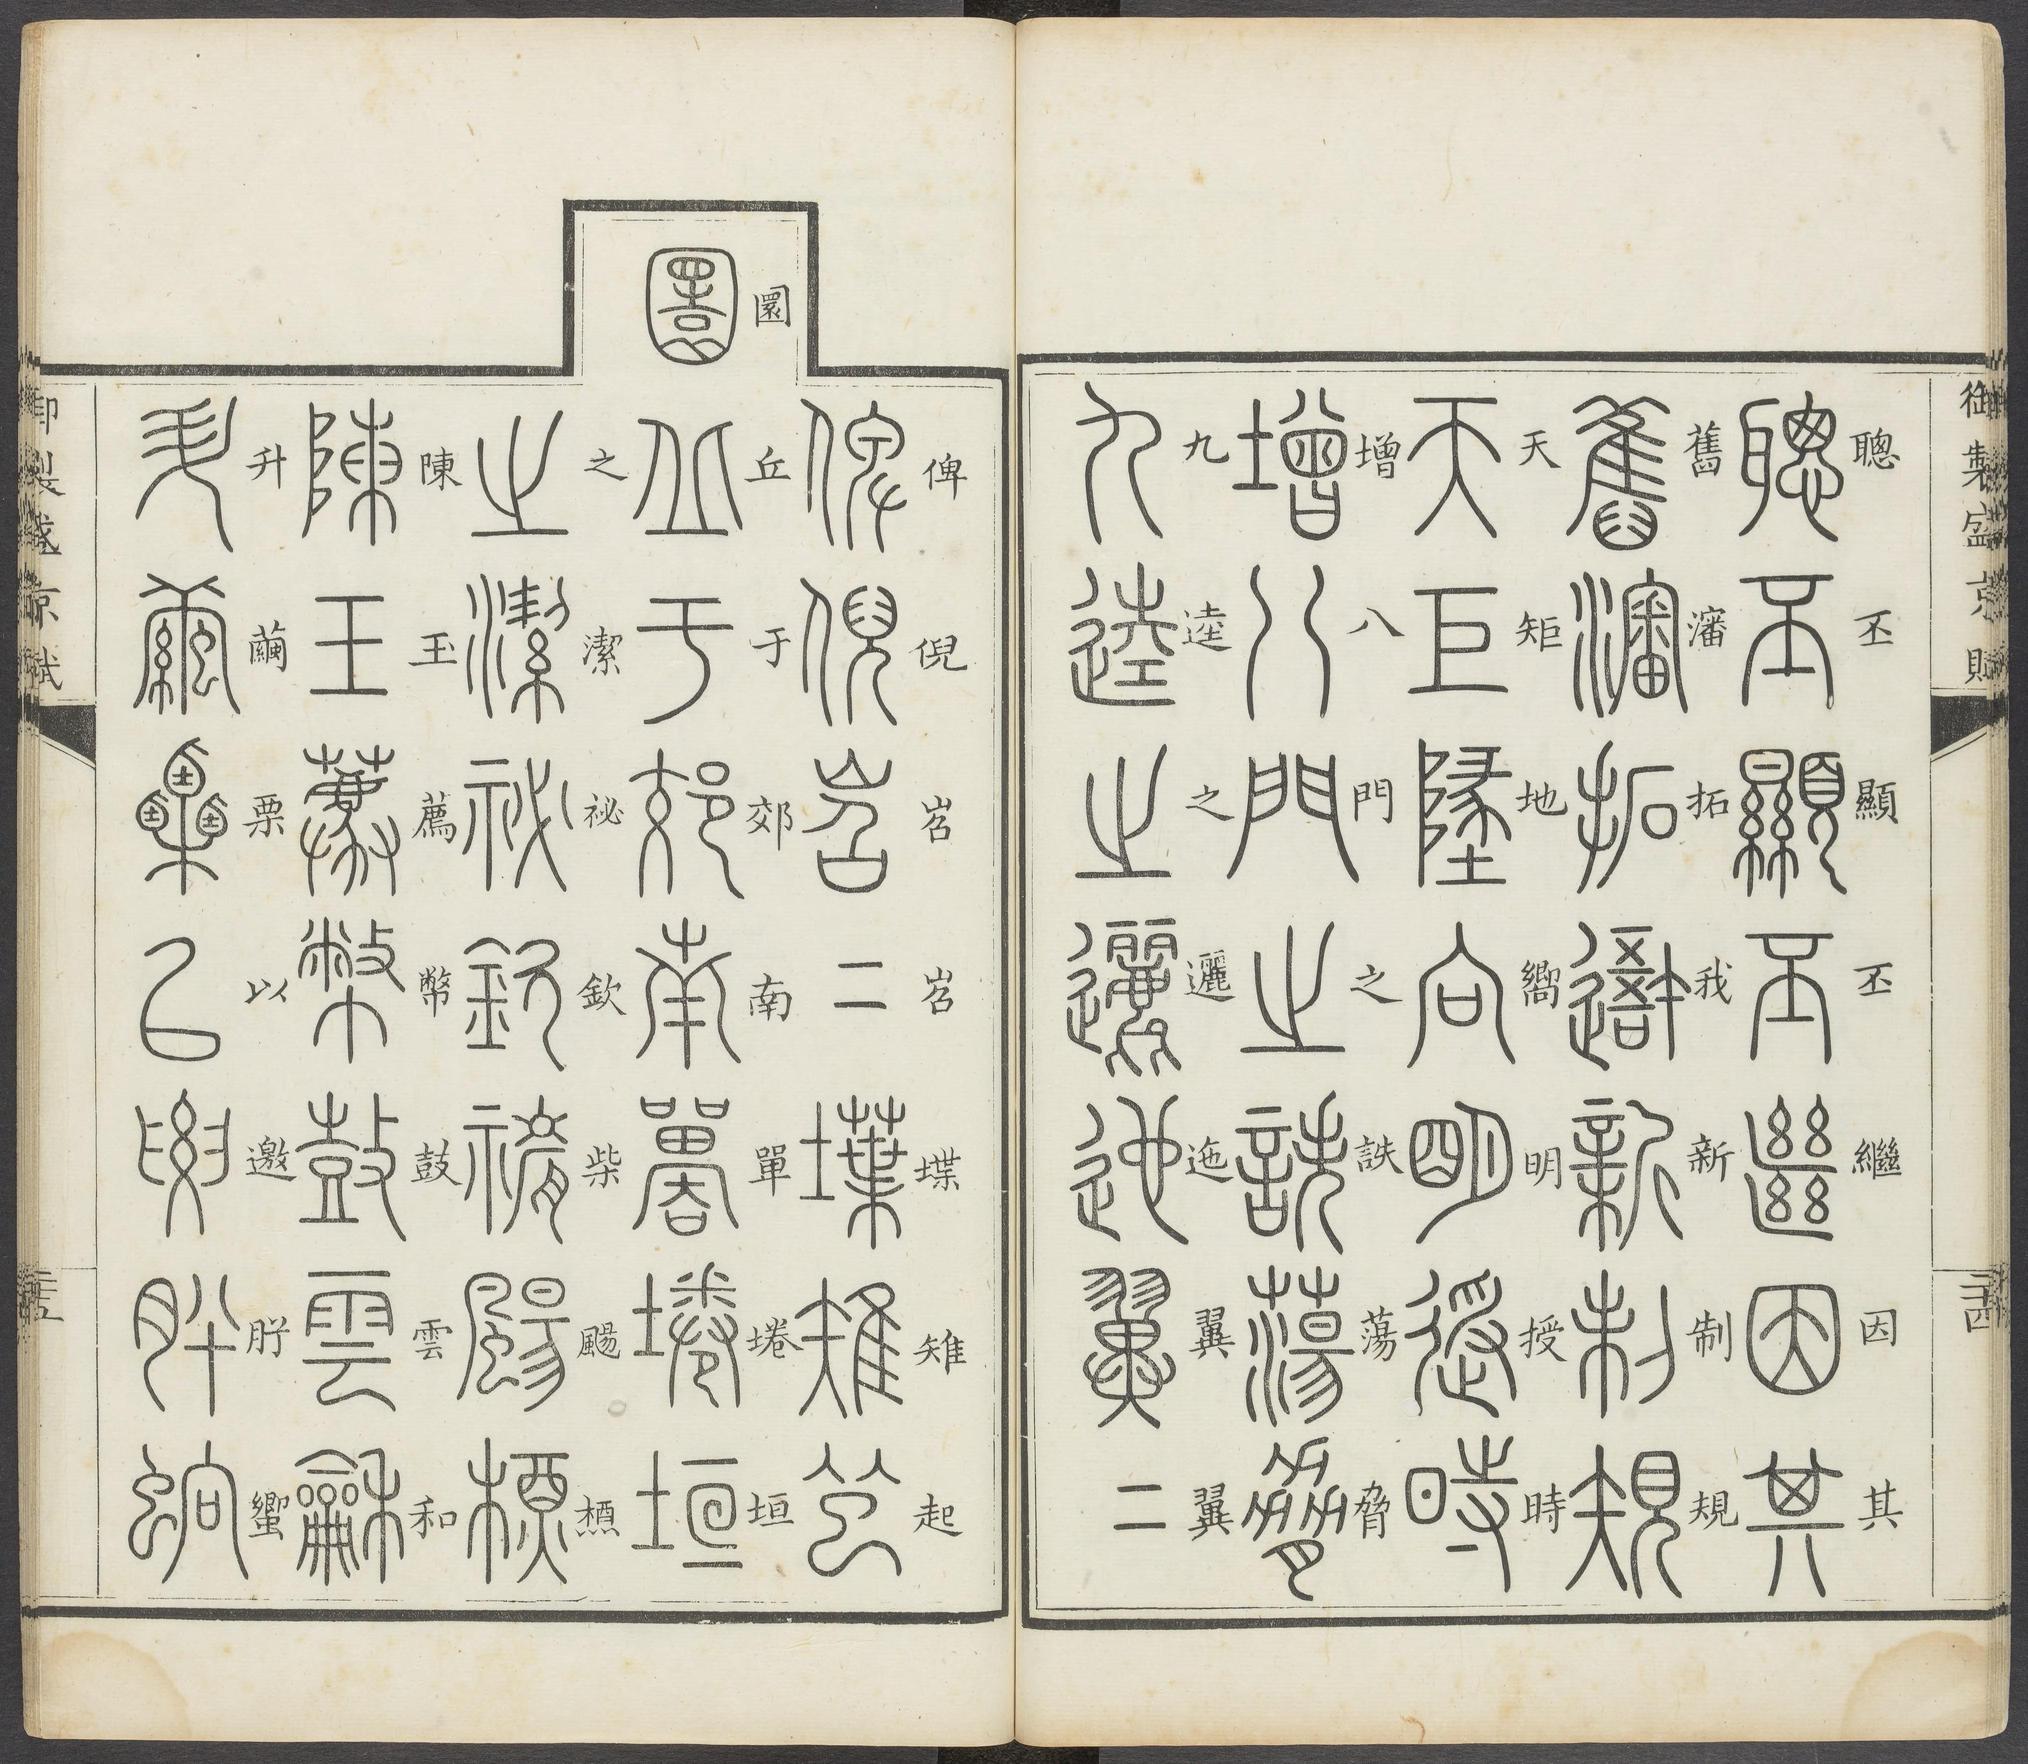 御製盛京賦
二十四
聰丕顯丕繼因其
舊瀋拓我新制規
天矩地嚮明授時
增八門之詄蕩脅
九逵之邐迤翼翼
俾倪岧岧堞雉起
圜丘于郊南單埢垣
之潔祕欽柴颺槱
陳玉薦幣鼓雲和
升繭栗以邀肸蠁
御製盛京賦
二十五